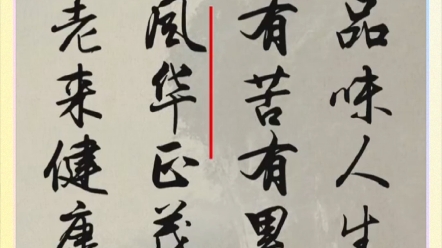 品味人生
有苦有累
风华正茂
老来健康